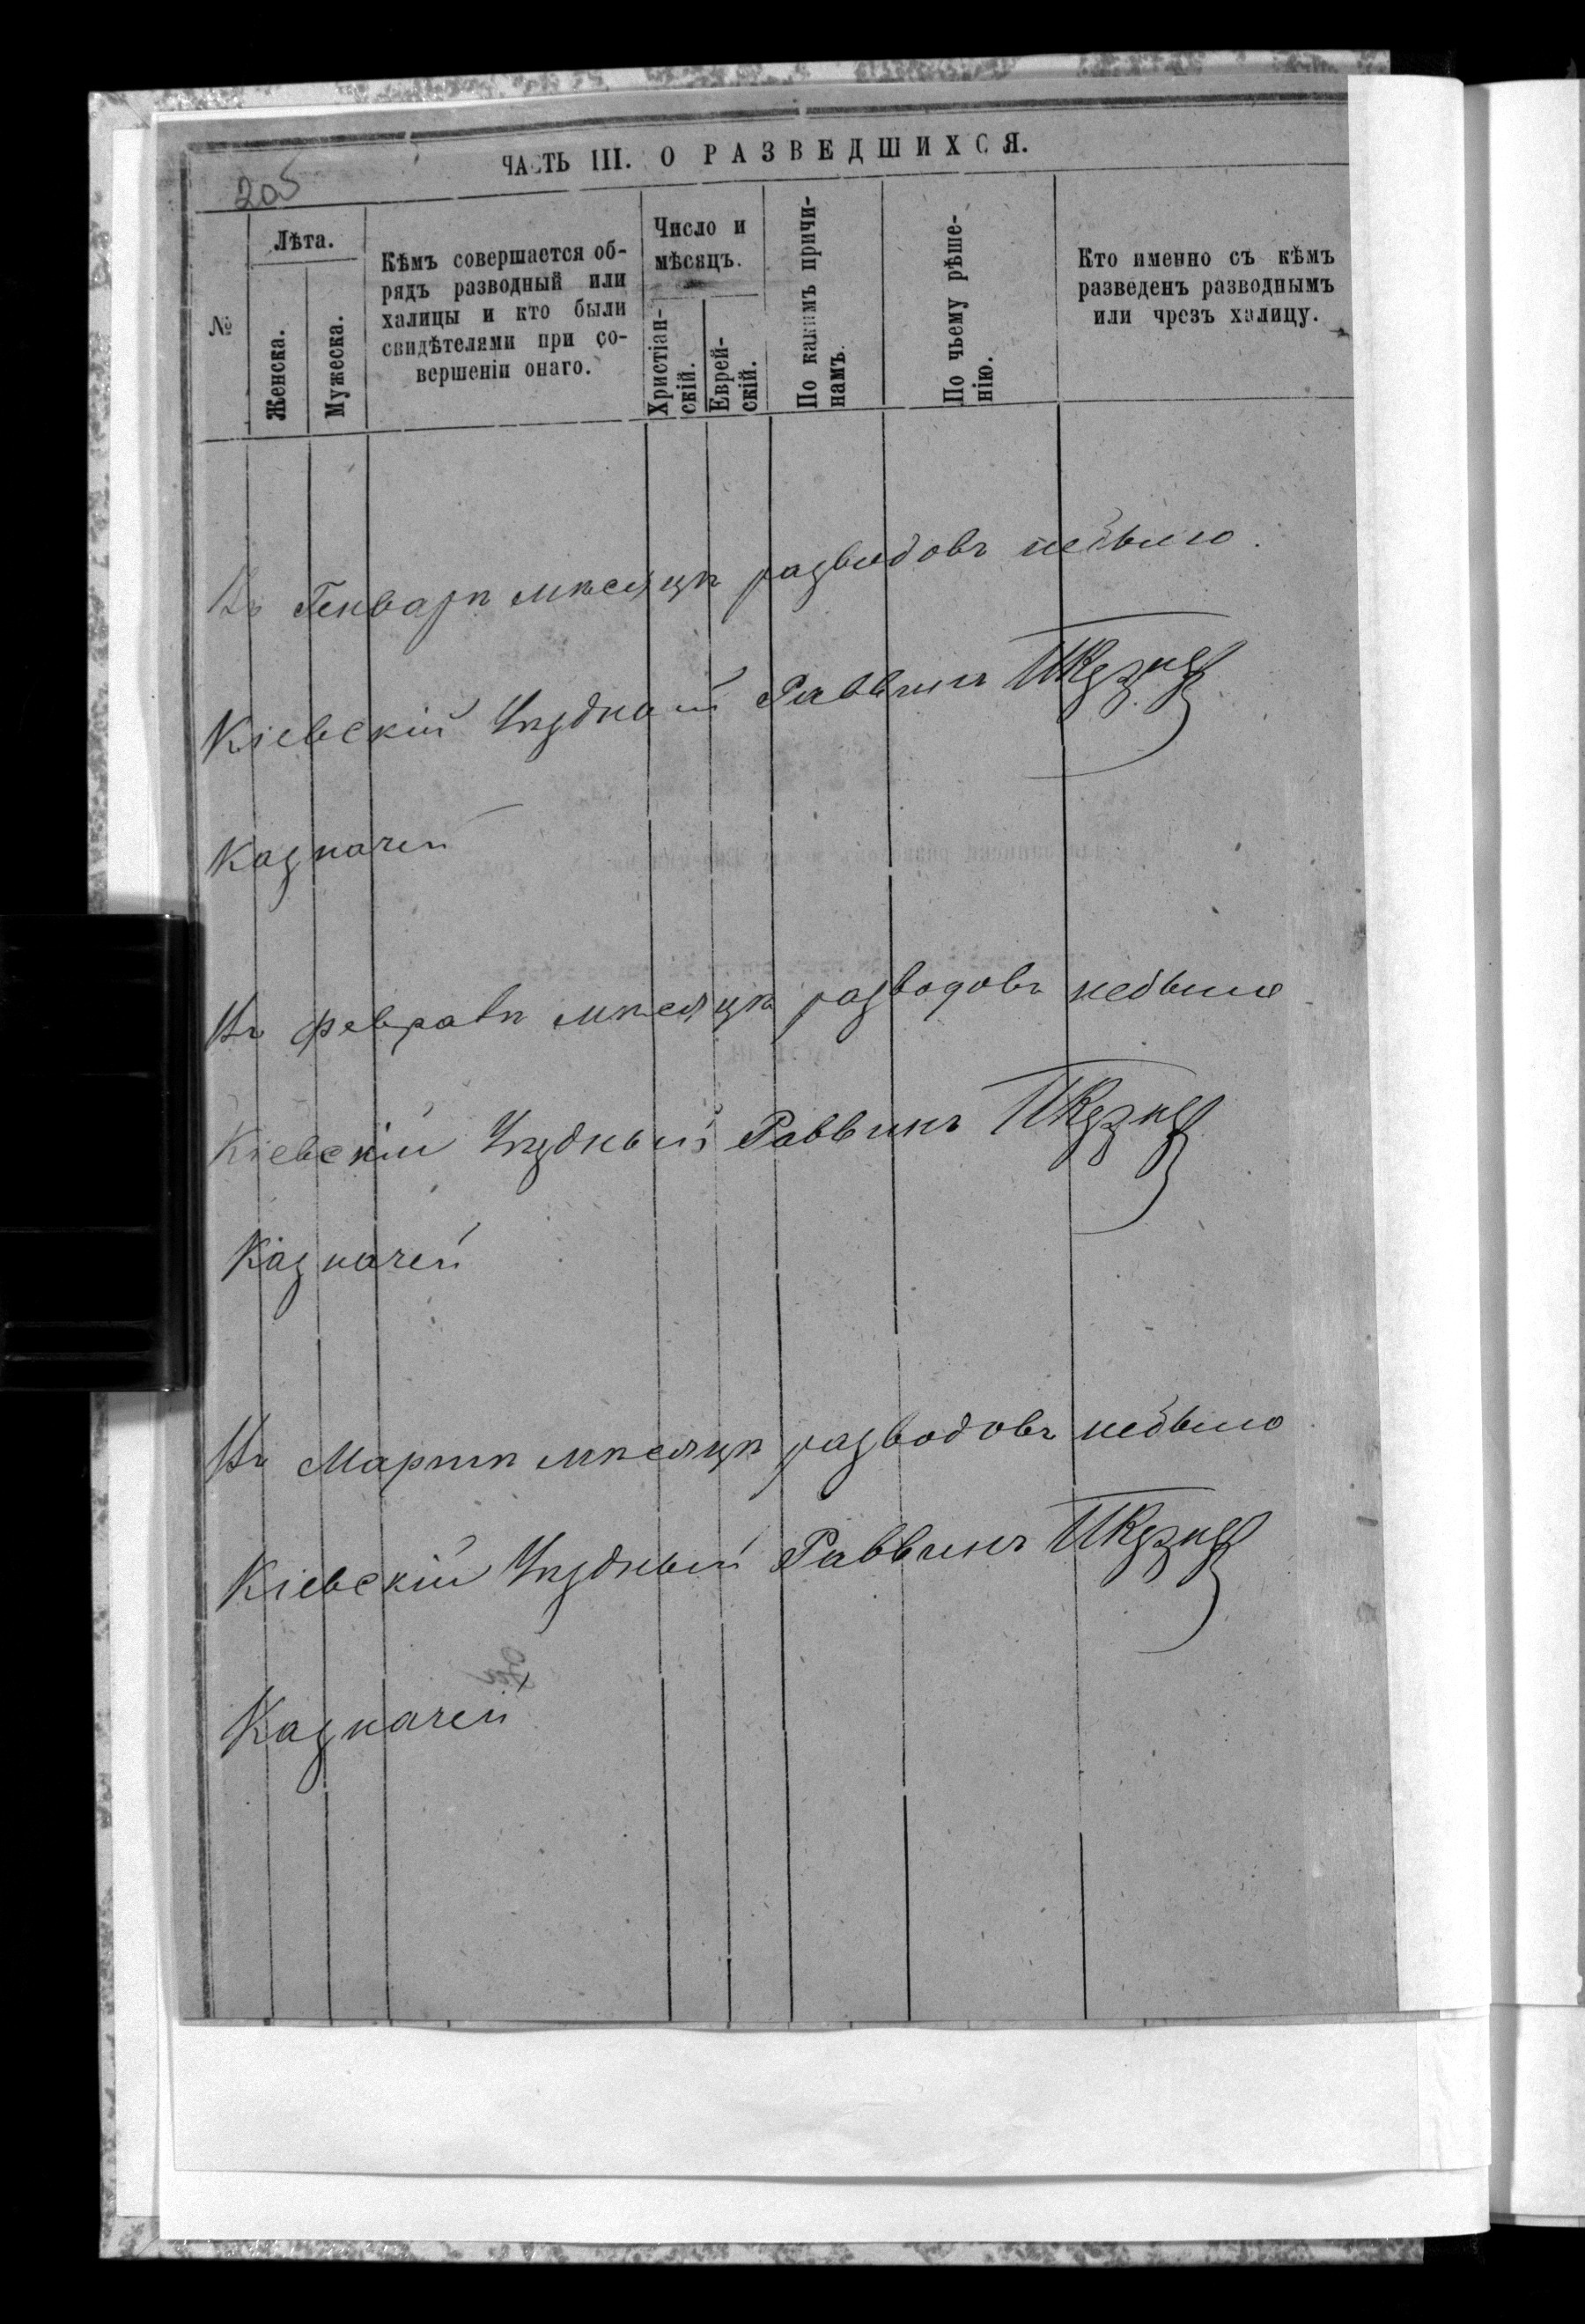 205
ЧАСТЬ III. О РАЗВЕДШИХСЯ.
№
Лѣта.
Женска.
Мужеска.
Кѣмъ совершается об-
рядъ разводный или
халицы и кто были
свидѣтелями при со-
вершеніи онаго.
Число и
мѣсяцъ.
Христіан-
скій.
Еврей-
скій.
По какимъ причи-
намъ.
По чьему рѣше-
нію.
Кто именно съ кѣмъ
разведенъ разводнымъ
или чрезъ халицу.
Въ Генварѣ мѣсяцѣ разводовъ небыло.
Кіевскій Уѣздный Раввинъ
Казначей
Въ Февралѣ мѣсяцѣ разводовъ небыло
Кіевскій Уѣздный Раввинъ
Казначей
Въ Мартѣ мѣсяцѣ разводовъ небыло
Кіевскій Уѣздный Раввинъ
Казначей